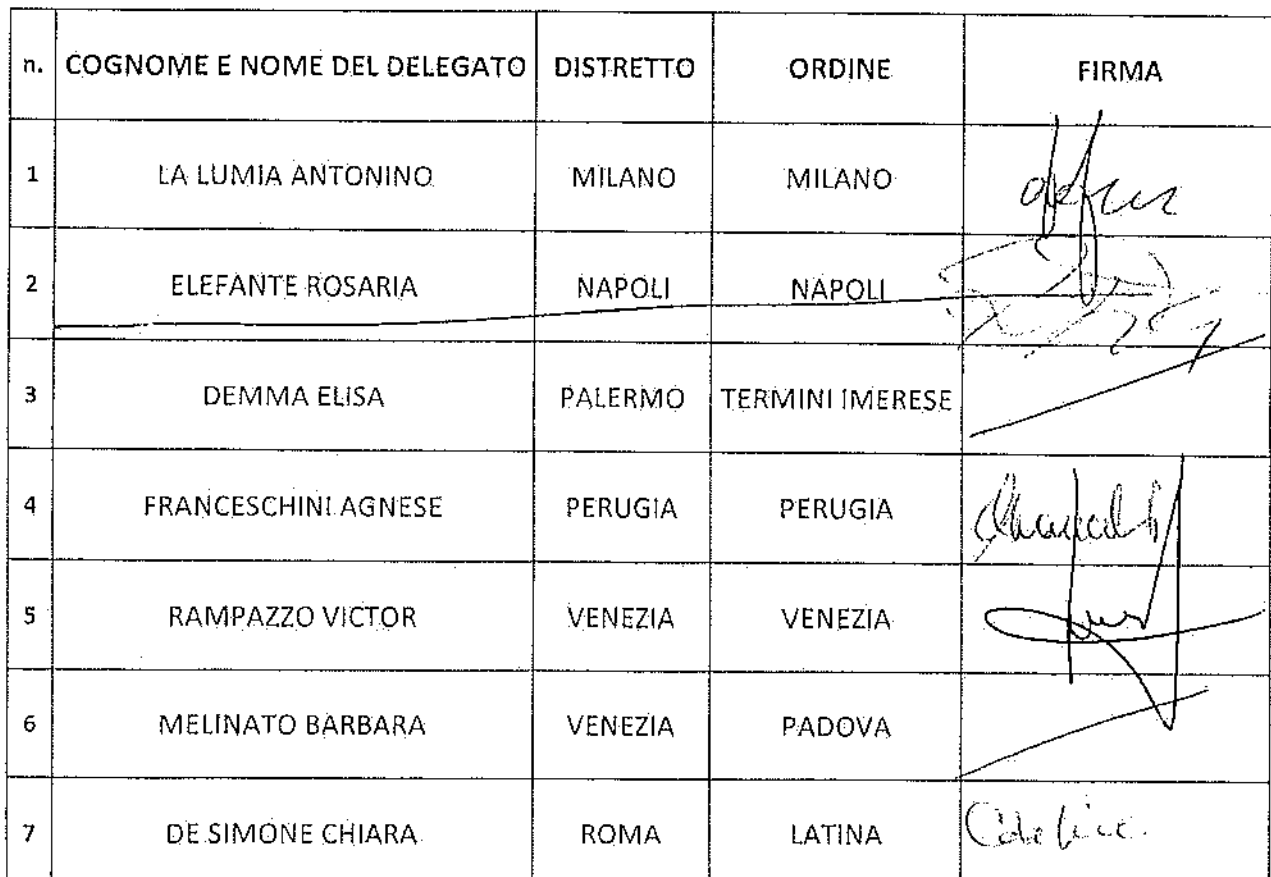 n. COGNOME E NOME DEL DELEGATO DISTRETTO ORDINE FIRMA
1 LA LUMIA ANTONINO MILANO MILANO
2 ELEFANTE ROSARIA NAPOLI NAPOLI
3 DEMMA ELISA PALERMO TERMINI IMERESE
4 FRANCESCHINI AGNESE PERUGIA PERUGIA
5 RAMPAZZO VICTOR VENEZIA VENEZIA
6 MELINATO BARBARA VENEZIA PADOVA
7 DE SIMONE CHIARA ROMA LATINA